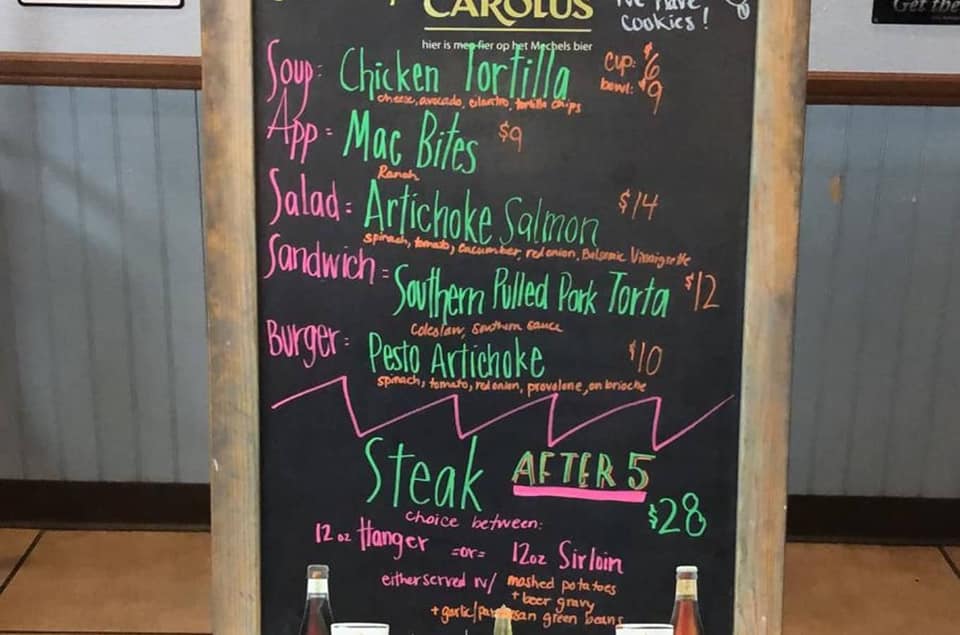 CAROLUS
We have
cookies!
Get the
hier is men fier op het Mechels bier
Soup: Chicken Tortilla cup: $6
bowl: $9
cheese, avocado, cilantro, tortilla chips
App: Mac Bites $9
Ranch
Salad: Artichoke Salmon $14
spinach, tomato, cucumber, red onion, Balsamic Vinaigrette
Sandwich: Southern Pulled Pork Torta $12
coleslaw, southern sauce
Burger: Pesto Artichoke $10
spinach, tomato, red onion, provolone, on brioche
Steak AFTER 5
$28
choice between:
12 oz Hanger =or= 12oz Sirloin
either served w/ mashed potatoes
+ beer gravy
+ garlic/parmesan green beans